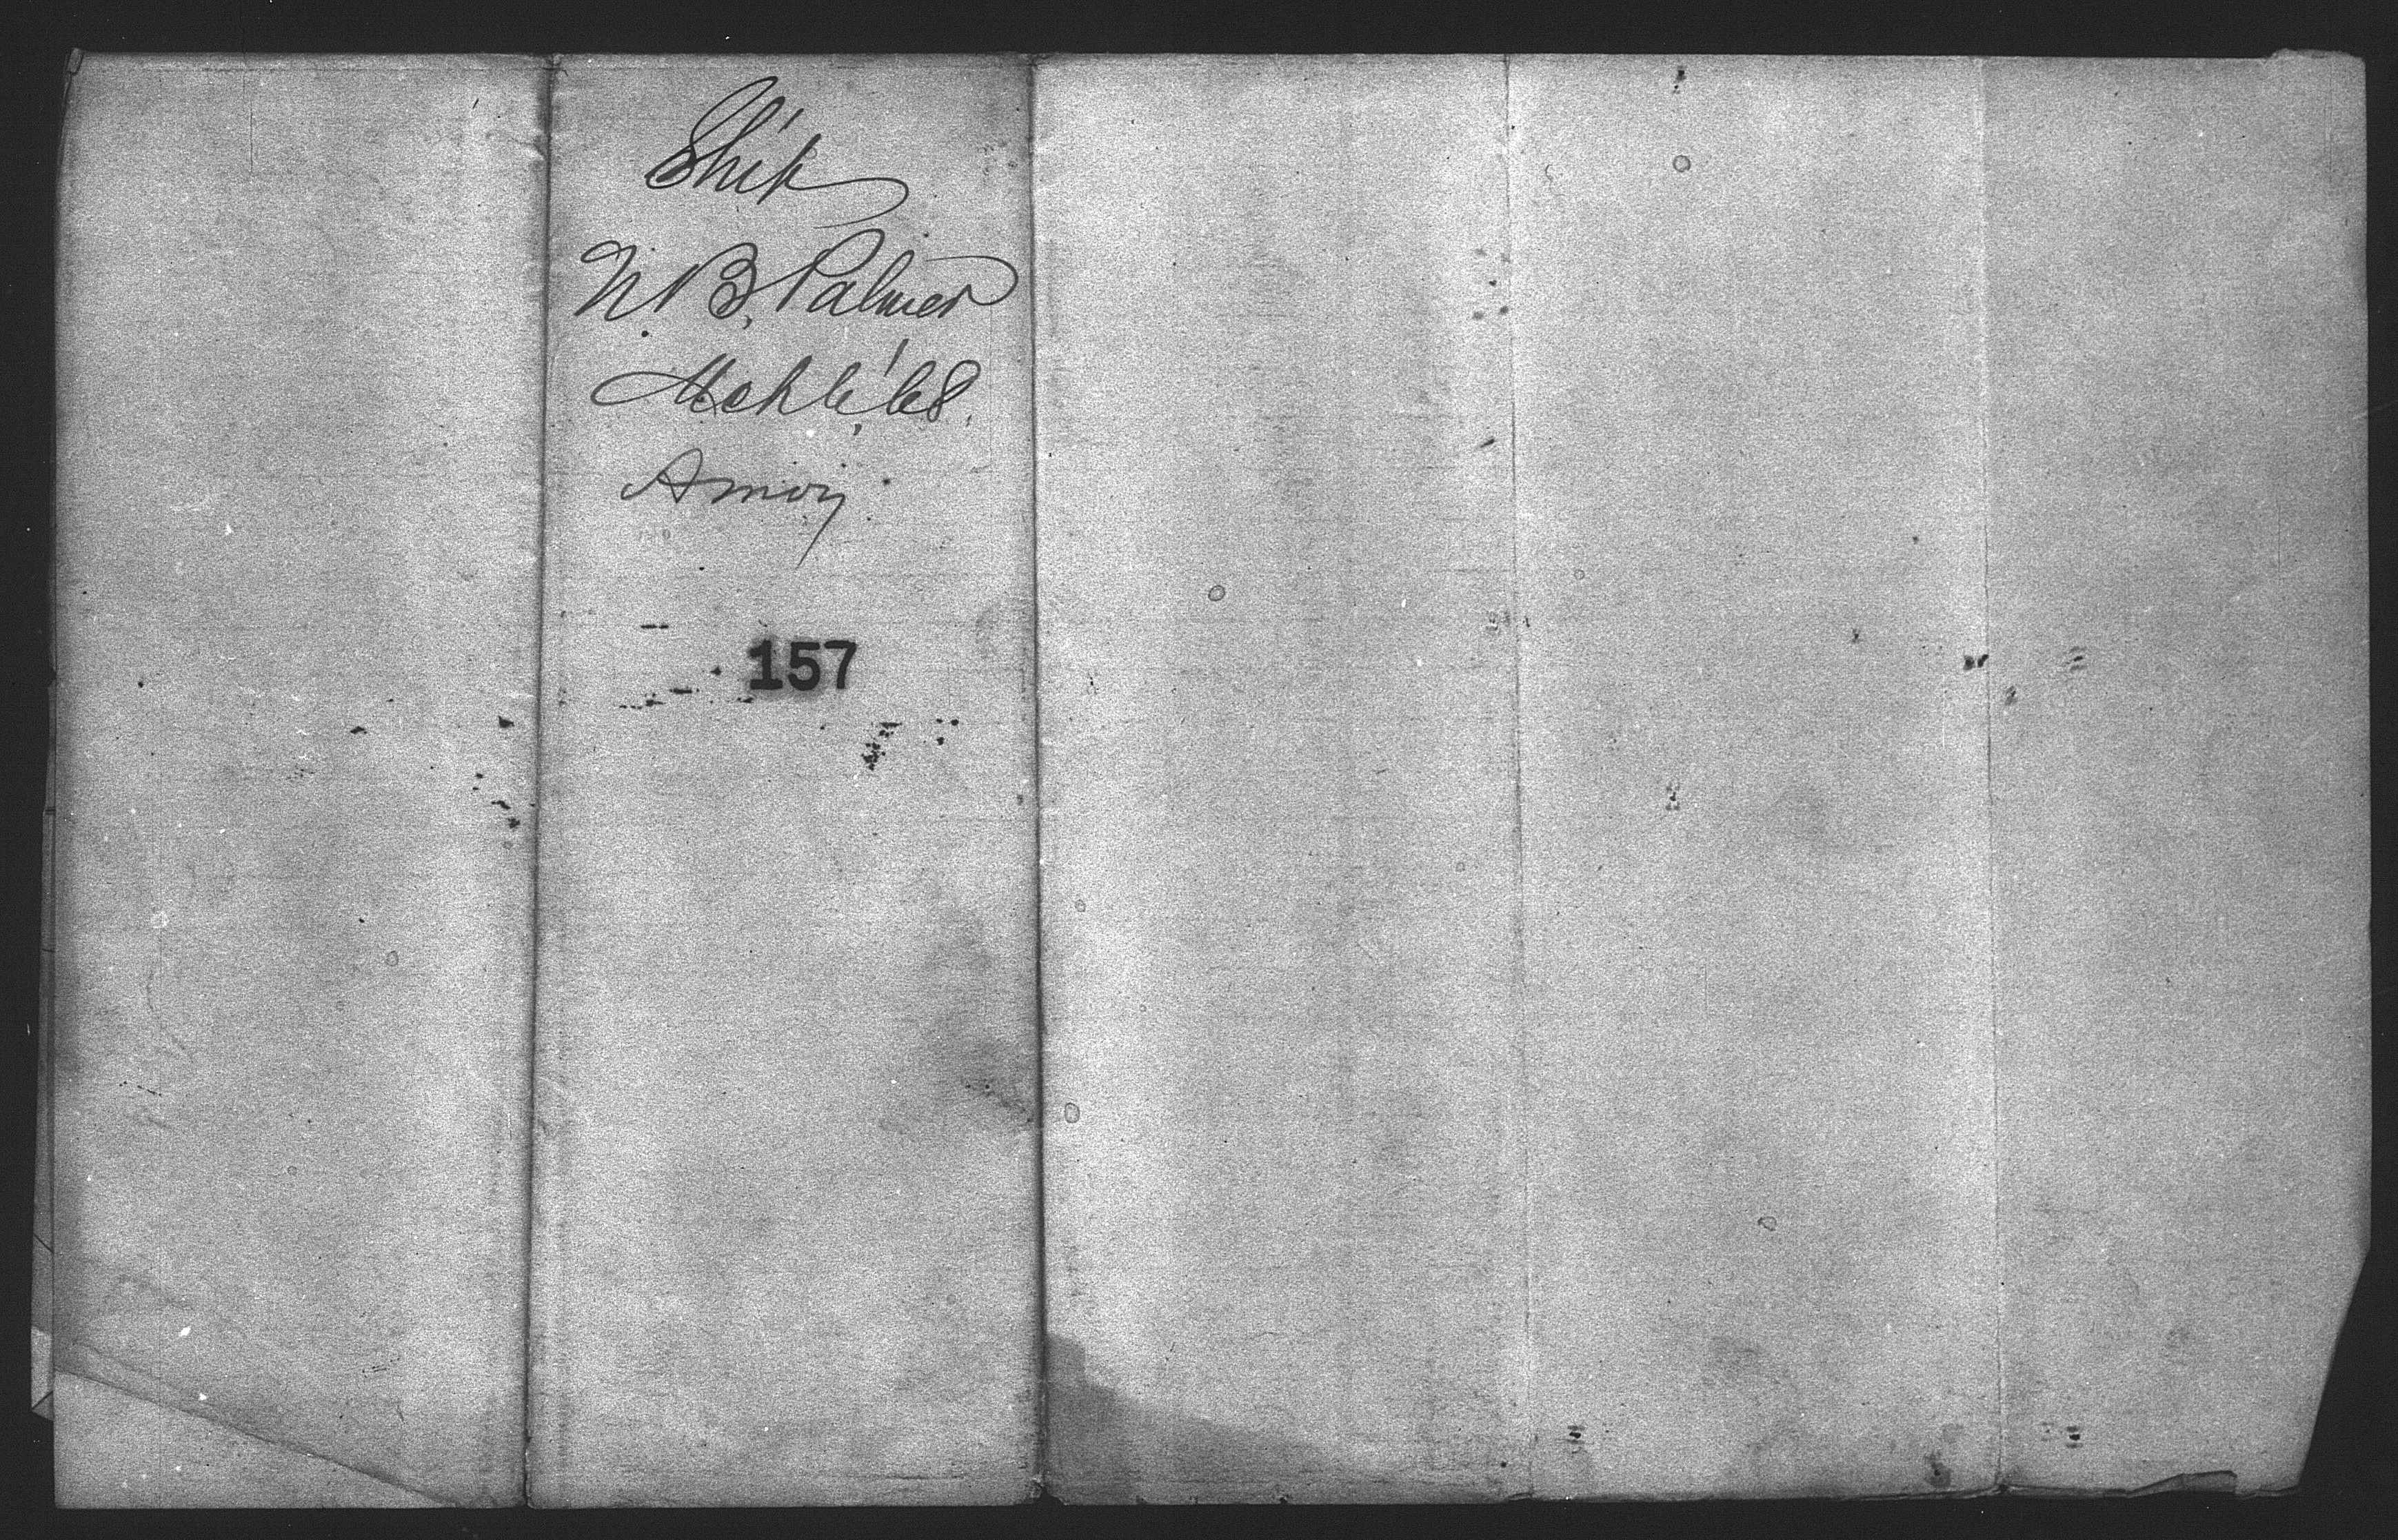 Ship
N. B. Palmer
Mch 6, '68.
Amoy
157